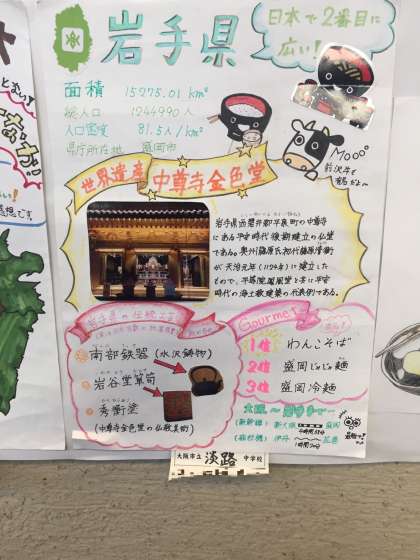 岩手県
日本で2番目に
広い!
面積 15275.01 km²
総人口 1244990人
人口密度 81.5人/km²
県庁所在地 盛岡市
Mooo
世界遺産 中尊寺金色堂
岩手県西磐井郡平泉町の中尊寺
にある平安時代後期建立の仏堂
である。奥州藤原氏初代藤原清衡
が天治元年(1124年)に建立した
もので、平等院鳳凰堂と共に平安
時代の浄土教建築の代表例である。
岩手県の伝統工芸
南部鉄器(水沢鋳物)
岩谷堂箪笥
秀衡塗
(中尊寺金色堂の仏教美術)
Gourmet
1位 わんこそば
2位 盛岡じゃじゃ麺
3位 盛岡冷麺
大阪〜岩手まで…
(新幹線) 新大阪 盛岡
(飛行機) 伊丹 花巻
大阪市立 淡路 中学校